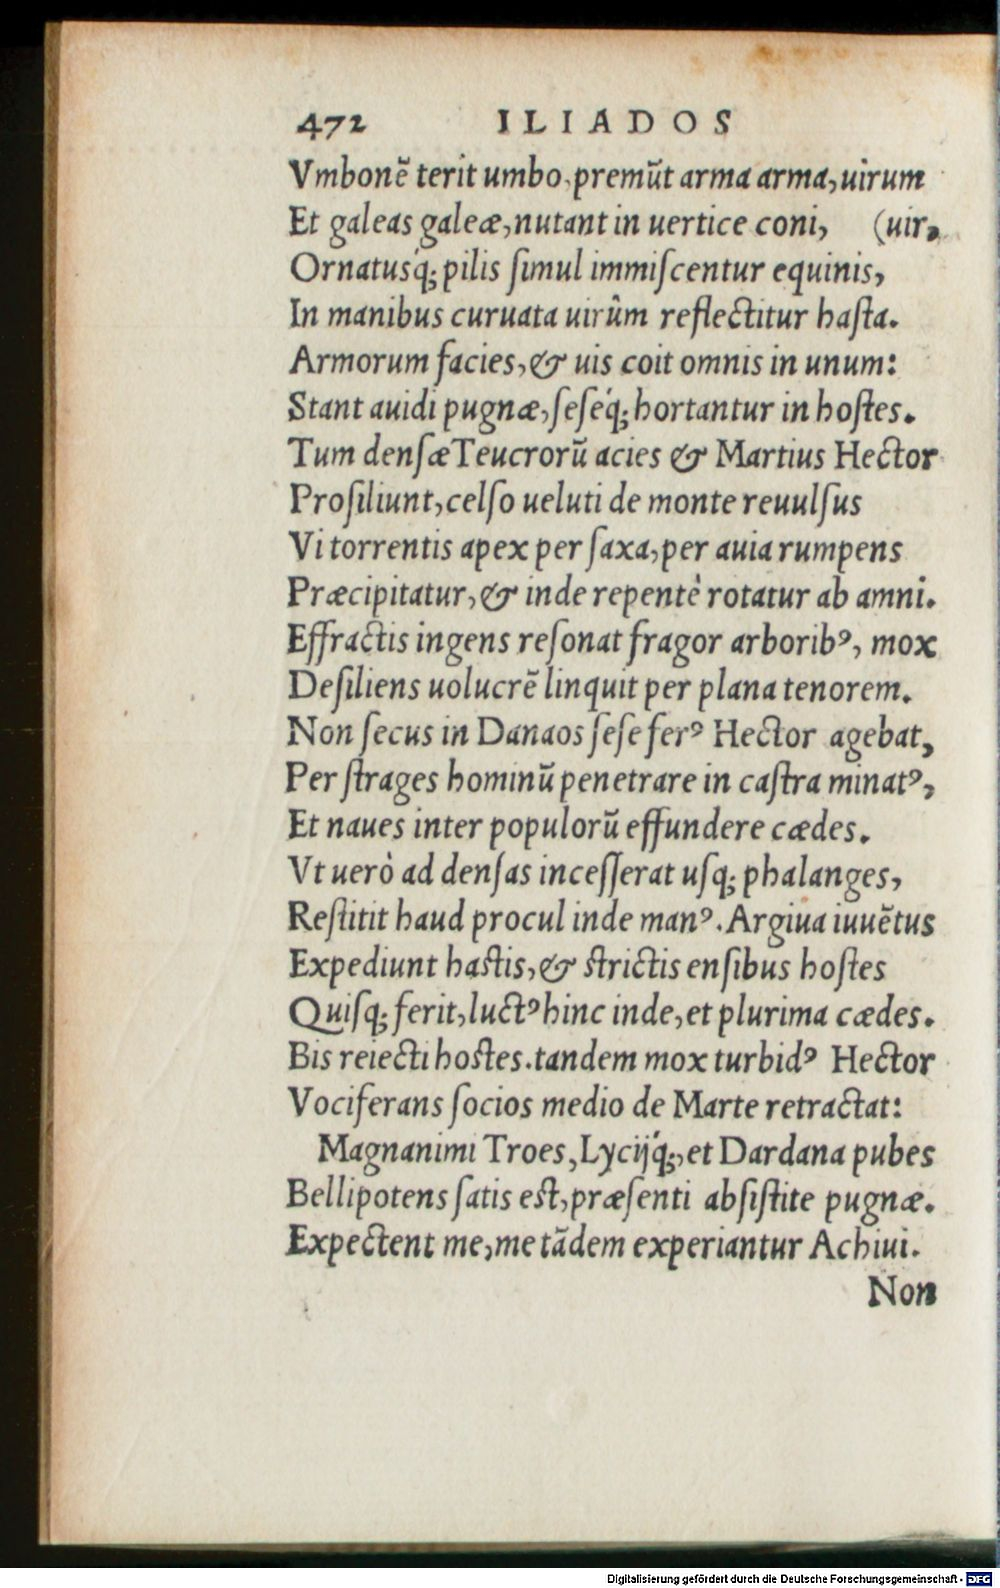 472 ILIADOS
Vmbonē terit umbo, premūt arma arma, uirum
Et galeas galeæ, nutant in uertice coni, (uir,
Ornatusq́; pilis ſimul immiſcentur equinis,
In manibus curuata uirûm reflectitur haſta.
Armorum facies, & uis coit omnis in unum:
Stant auidi pugnæ, ſeſeq́; hortantur in hoſtes.
Tum denſæ Teucrorū acies & Martius Hector
Proſiliunt, celſo ueluti de monte reuulſus
Vi torrentis apex per ſaxa, per auia rumpens
Præcipitatur, & inde repentè rotatur ab amni.
Effractis ingens reſonat fragor arboribꝰ, mox
Deſiliens uolucrē linquit per plana tenorem.
Non ſecus in Danaos ſeſe ferꝰ Hector agebat,
Per ſtrages hominū penetrare in caſtra minatꝰ,
Et naues inter populorū effundere cædes.
Vt uerò ad denſas inceſſerat uſq; phalanges,
Reſtitit haud procul inde manꝰ. Argiua iuuētus
Expediunt haſtis, & ſtrictis enſibus hoſtes
Quiſq; ferit, luctꝰ hinc inde, et plurima cædes.
Bis reiecti hoſtes. tandem mox turbidꝰ Hector
Vociferans ſocios medio de Marte retractat:
Magnanimi Troes, Lycijq́;, et Dardana pubes
Bellipotens ſatis eſt, præſenti abſiſtite pugnæ.
Expectent me, me tādem experiantur Achiui.
Non
Digitalisierung gefördert durch die Deutsche Forschungsgemeinschaft - DFG